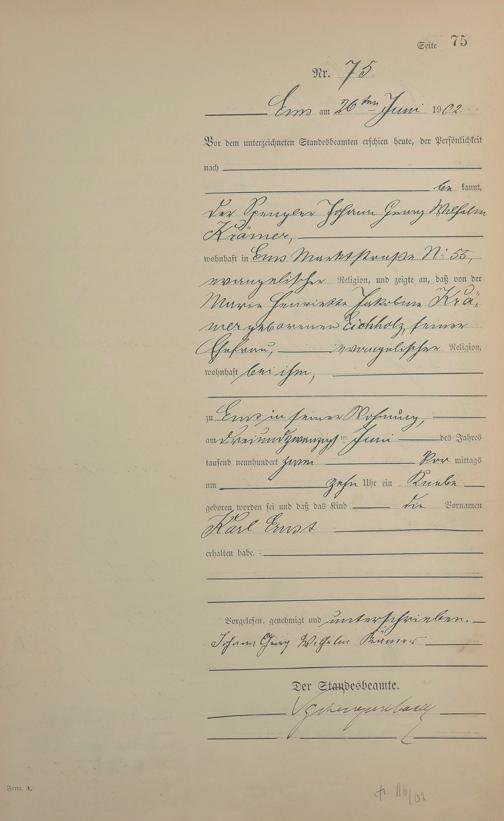 Seite 75
Nr. 75
Ems am 26ten Juni 1902
Vor dem unterzeichneten Standesbeamten erschien heute, der Persönlichkeit
nach
be kannt,
der Spengler Johann Georg Wilhelm
Krämer,
wohnhaft in Ems Marktstraße No 55,
evangelischer Religion, und zeigte an, daß von der
Marie Henriette Jakobine Krä-
mer geborenen Eichholz, seiner
Ehefrau, evangelischer Religion,
wohnhaft bei ihm,
zu Ems in seiner Wohnung,
am dreiundzwanzigsten Juni des Jahres
tausend neunhundert zwei Vor mittags
um zehn Uhr ein Knabe
geboren worden sei und daß das Kind die Vornamen
Karl Ernst
erhalten habe.
Vorgelesen, genehmigt und unterschrieben.
Johann Georg Wilhelm Krämer
Der Standesbeamte.
Form. A.